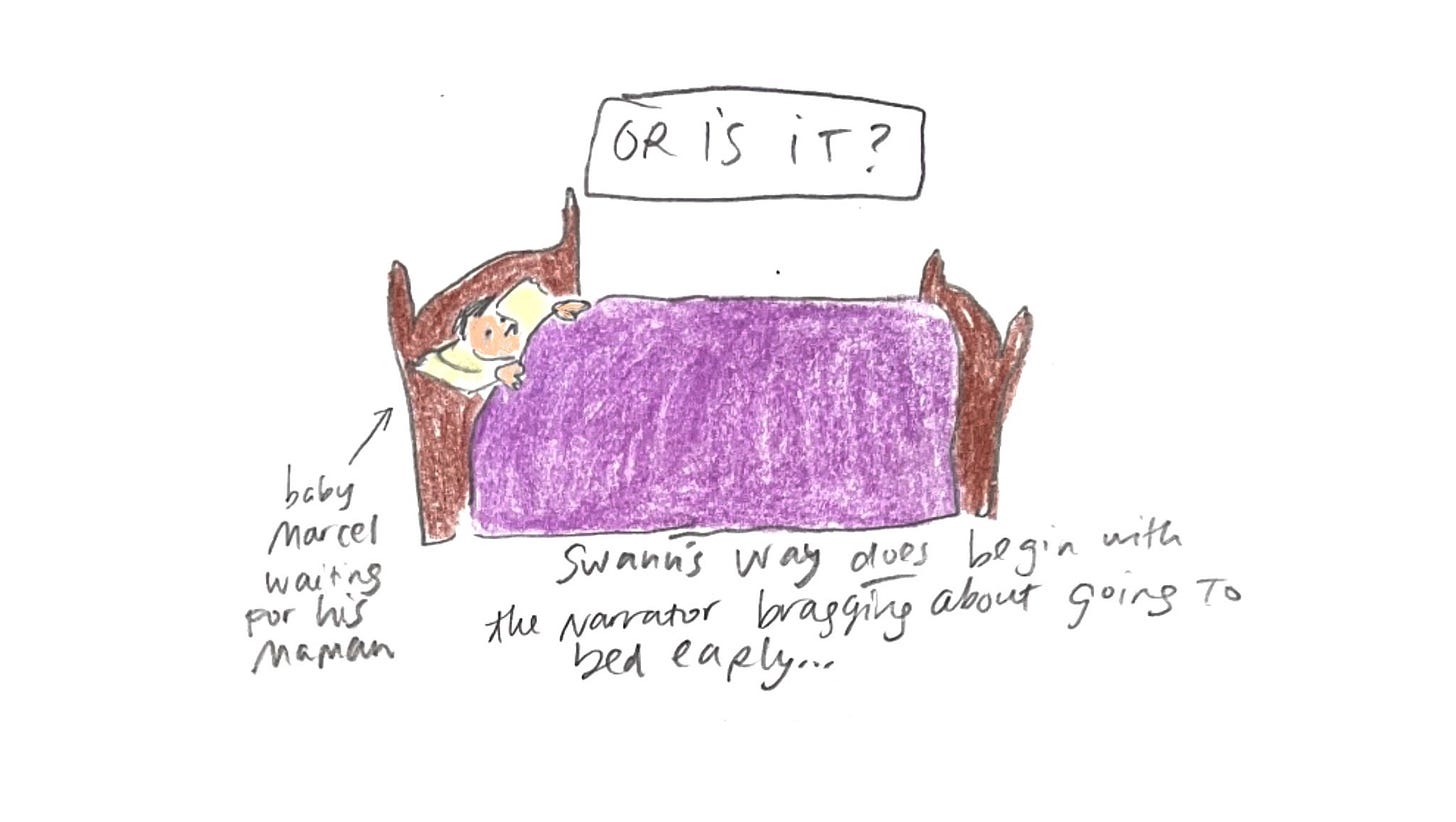 OR IS IT?
baby
Marcel
waiting
for his
Maman
Swann's Way does begin with
the narrator bragging about going to
bed early...